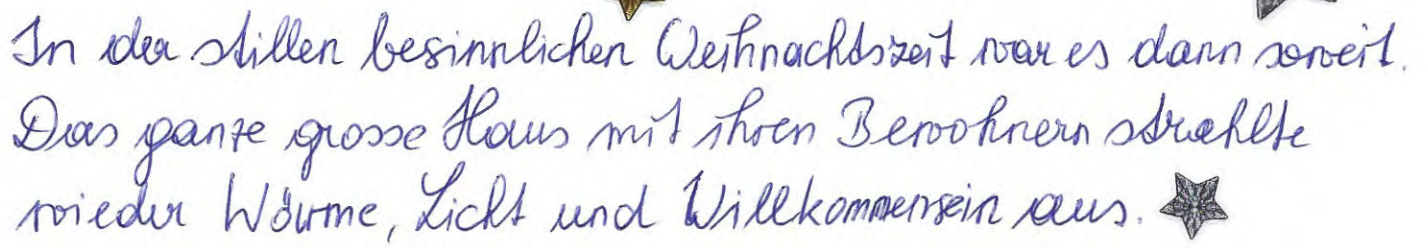 In der stillen besinnlichen Weihnachtszeit war es dann soweit.
Das ganze grosse Haus mit ihren Bewohnern strahlte
wieder Wärme, Licht und Willkommensein aus.